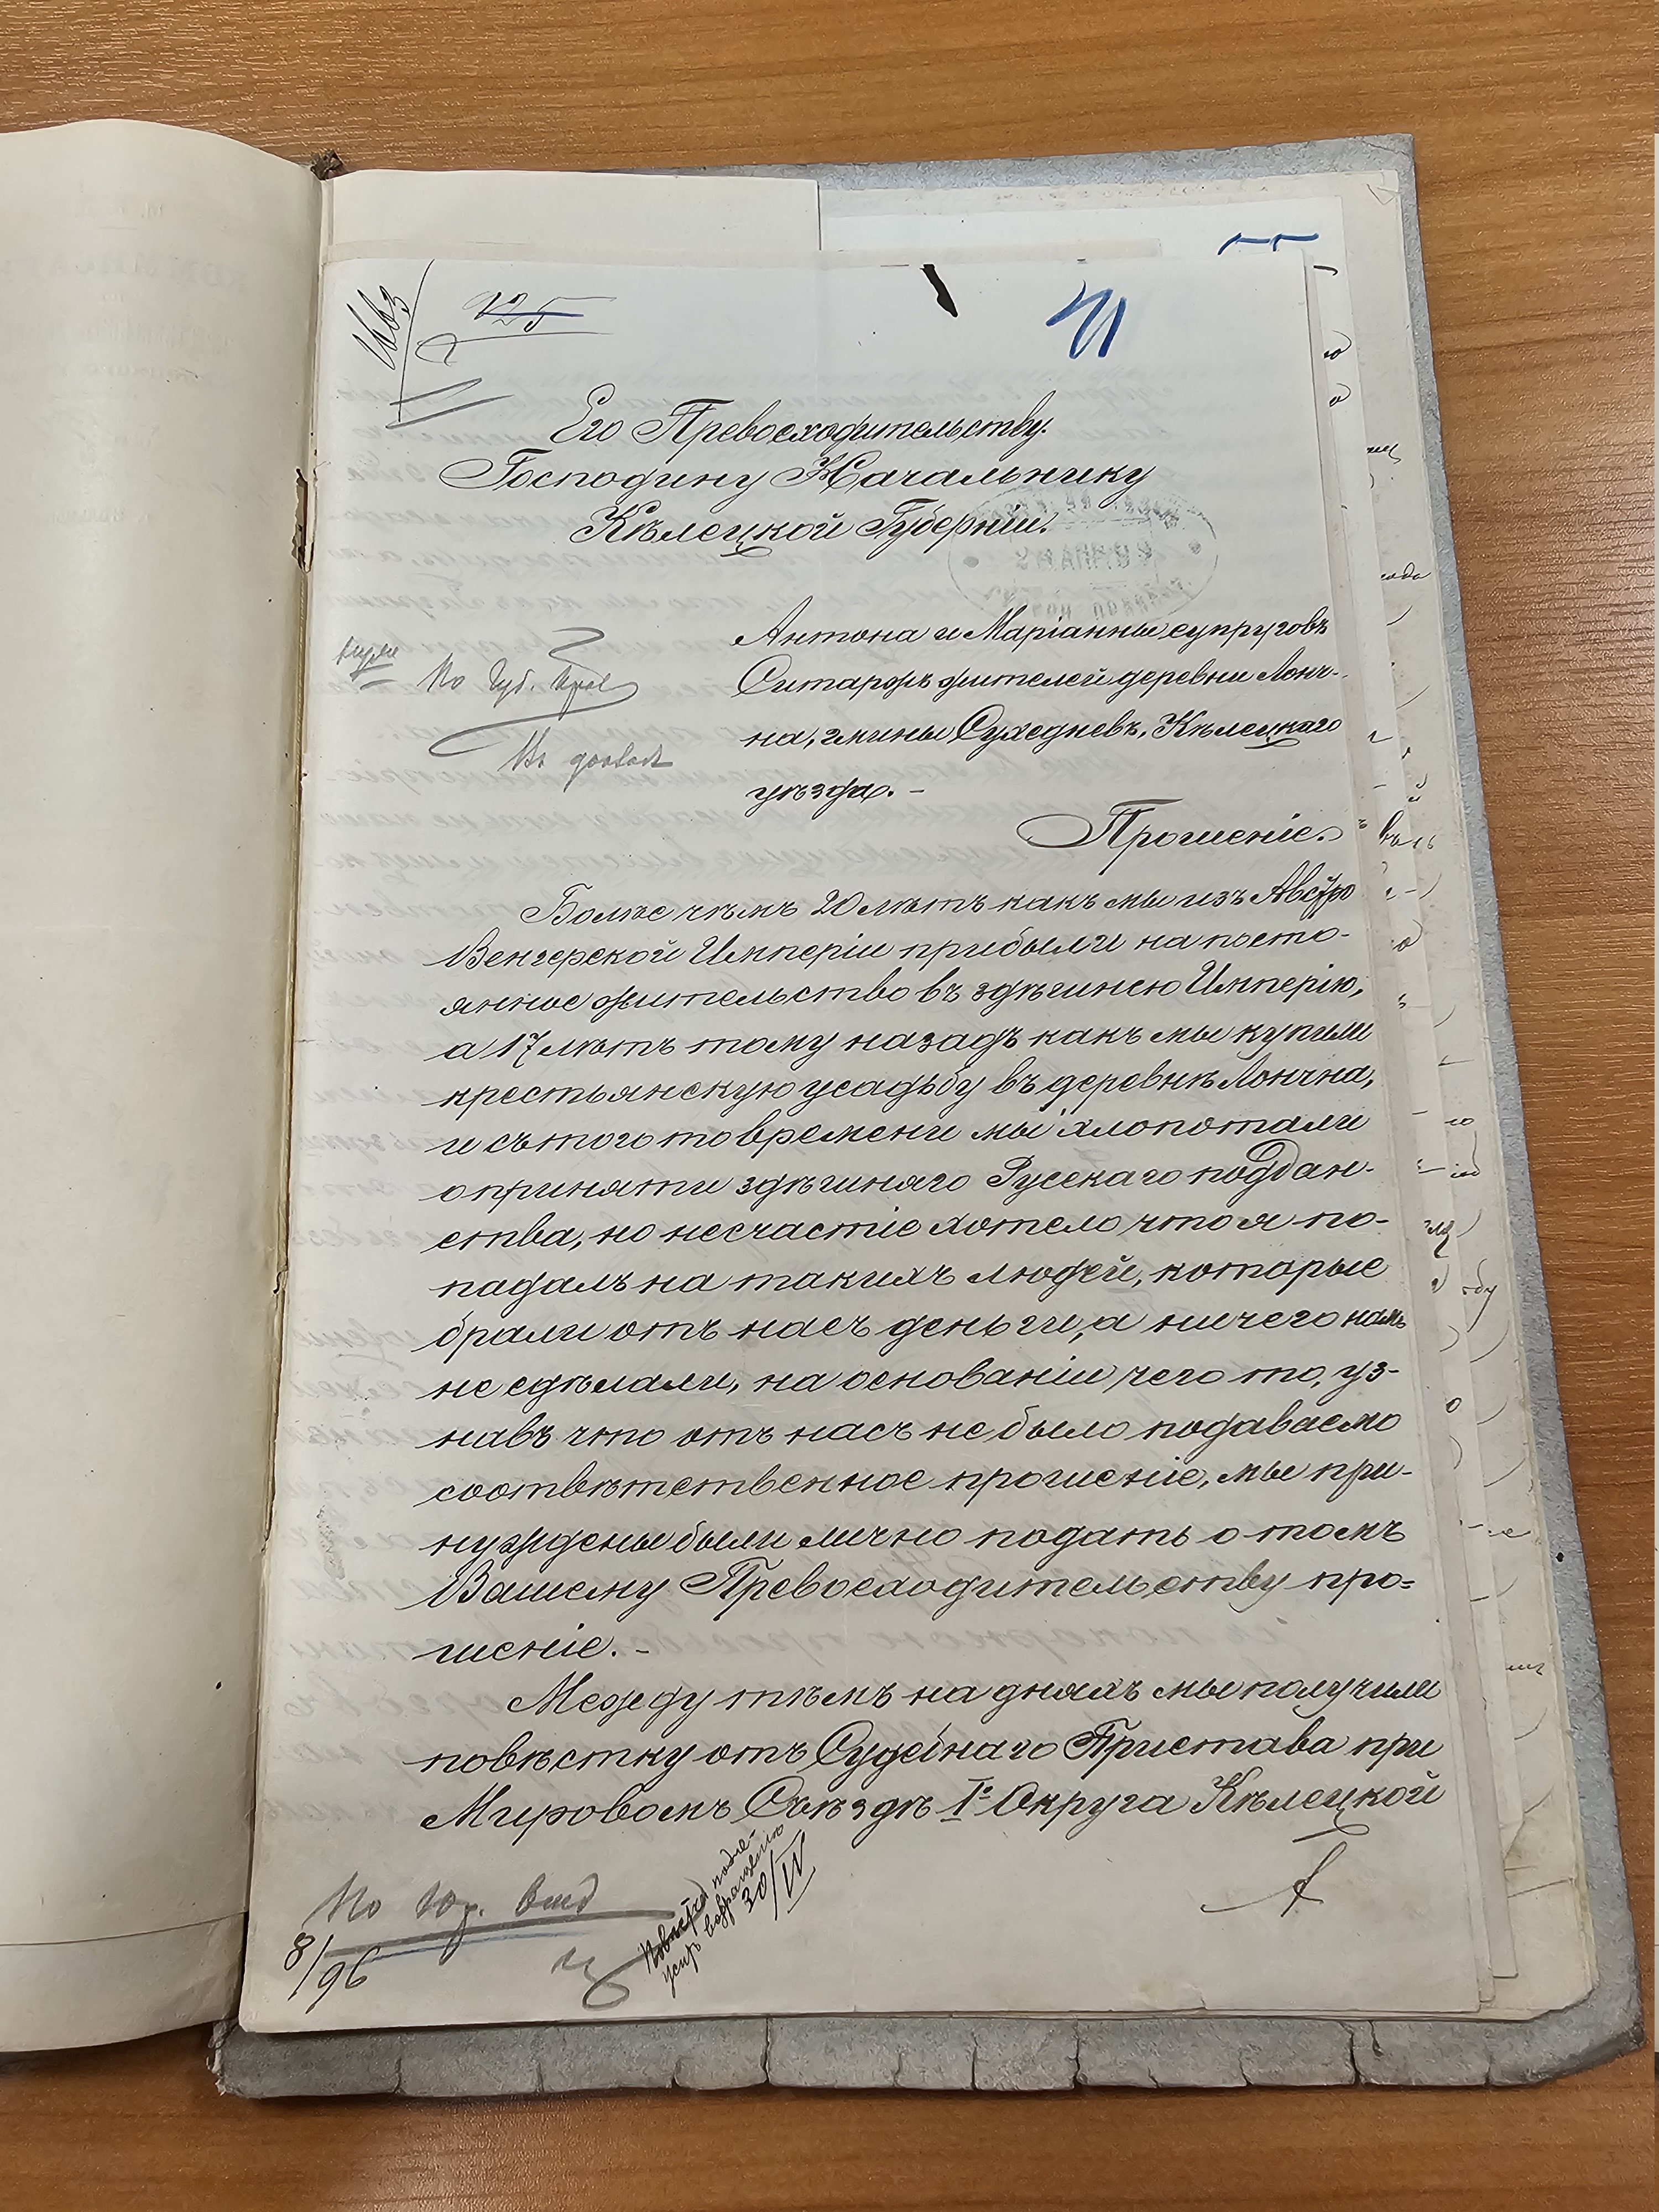 225
71
Его Превосходительству.
Господину Начальнику
Кѣлецкой Губерніи.
Антона и Маріанны супруговъ
Ситарожъ жителей деревни Лонч-
на, гмины Сухедневъ, Кѣлецкаго
уѣзда. -
По Губ. Прав
Прошеніе.
Болѣе чѣмъ 20 лѣтъ какъ мы изъ Австро
Венгерской Имперіи прибыли на посто-
янное жительство въ здѣшнею Имперію,
а 17 лѣтъ тому назадъ какъ мы купили
крестьянскую усадьбу въ деревнѣ Лончна,
и съ того то времени мы хлопотали
о приняти здѣшняго Русскаго поддан-
ства, но несчастіе хотело что я по-
падалъ на такихъ людей, которые
брали отъ насъ деньги, а ничего намъ
не сдѣлали, на основаніи чего то, уз-
навъ что отъ насъ не было подаваемо
соотвѣтственное прошеніе, мы при-
нуждены были лично подать о томъ
Вашему Превосходительству про=
шеніе. -
Между тѣмъ на дняхъ мы получили
повѣстку отъ Судебнаго Пристава при
Мировомъ Съѣздѣ I° Округа Кѣлецкой
По Юр. Отд
8/96
30/IV